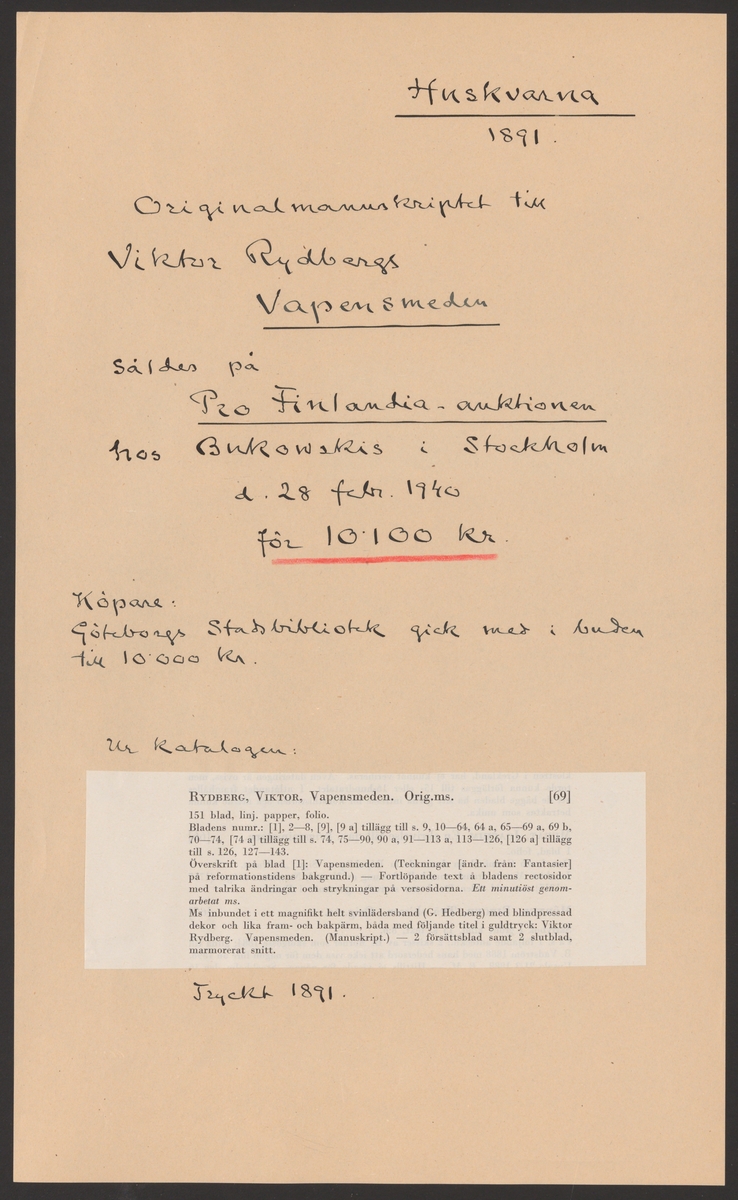 Huskvarna
1891.
Originalmanuskriptet till
Viktor Rydbergs
Vapensmeden
såldes på
Pro Finlandia-auktionen
hos Bukowskis i Stockholm
d. 28 febr. 1940
för 10·100 kr.
Köpare:
Göteborgs Stadsbibliotek gick med i buden
till 10·000 kr.
Ur katalogen:
RYDBERG, VIKTOR, Vapensmeden. Orig.ms. [69]
151 blad, linj. papper, folio.
Bladens numr.: [1], 2—8, [9], [9 a] tillägg till s. 9, 10—64, 64 a, 65—69 a, 69 b,
70—74, [74 a] tillägg till s. 74, 75—90, 90 a, 91—113 a, 113—126, [126 a] tillägg
till s. 126, 127—143.
Överskrift på blad [1]: Vapensmeden. (Teckningar [ändr. från: Fantasier]
på reformationstidens bakgrund.) — Fortlöpande text å bladens rectosidor
med talrika ändringar och strykningar på versosidorna. Ett minutiöst genom-
arbetat ms.
Ms inbundet i ett magnifikt helt svinlädersband (G. Hedberg) med blindpressad
dekor och lika fram- och bakpärm, båda med följande titel i guldtryck: Viktor
Rydberg. Vapensmeden. (Manuskript.) — 2 försättsblad samt 2 slutblad,
marmorerat snitt.
Tryckt 1891.